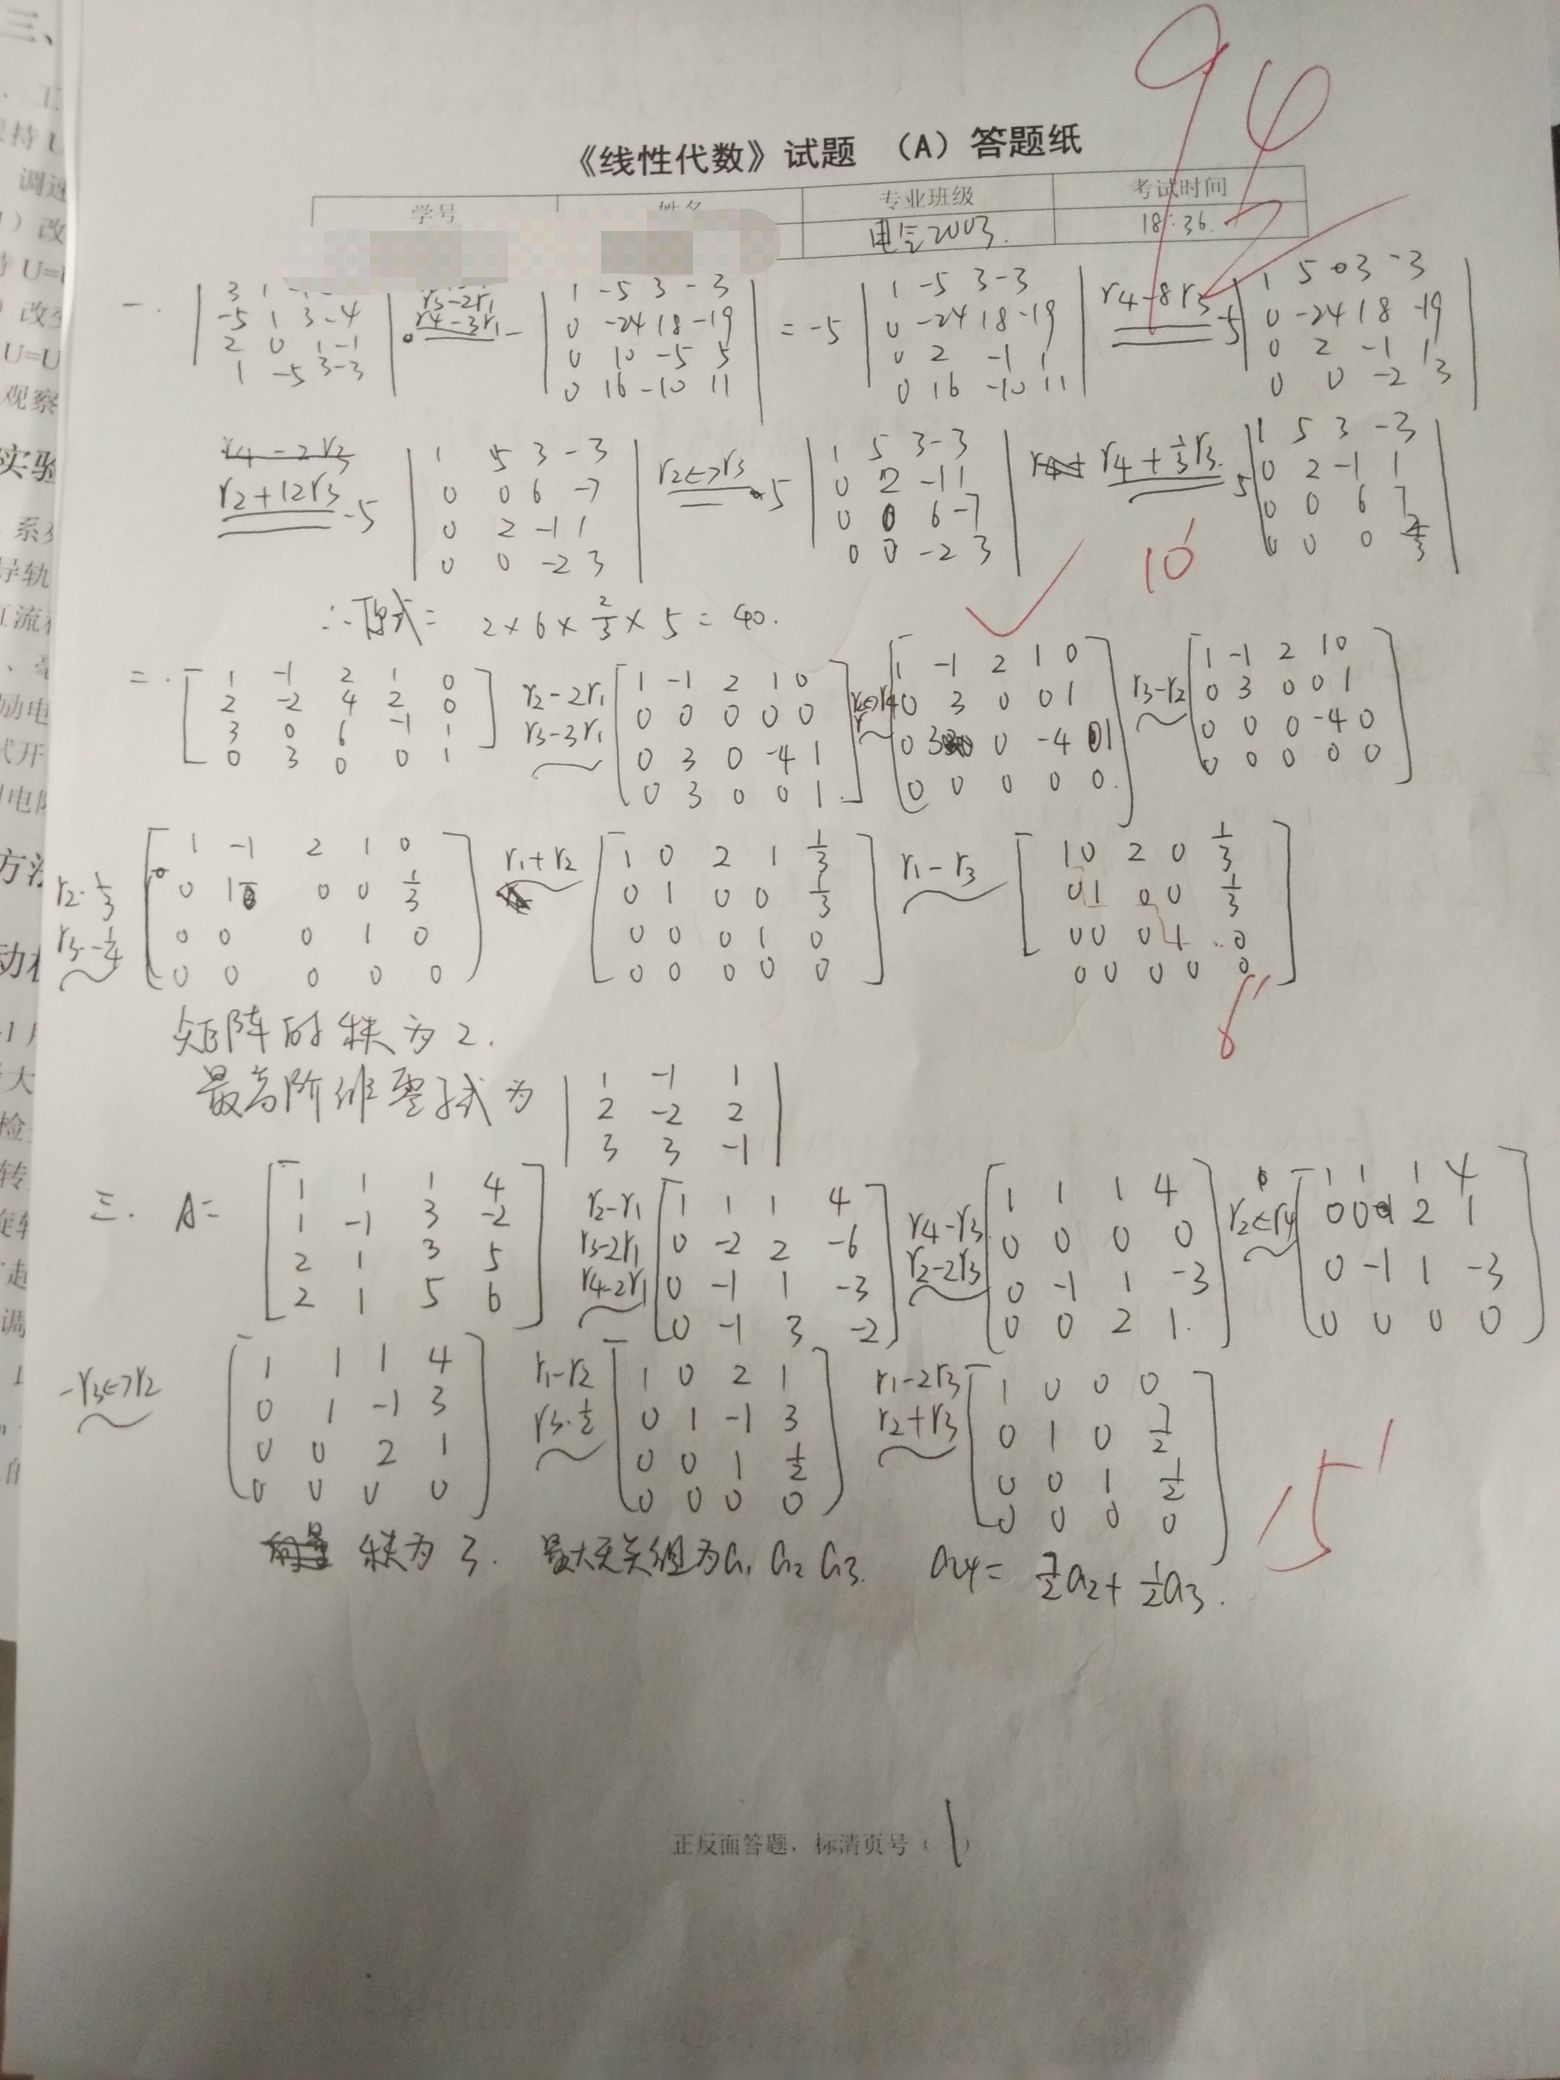 94
《线性代数》试题 （A）答题纸
学号 姓名 专业班级 考试时间
电气2003. 18:36.
一.
3 1
-5 1 3 -4
2 0 1 -1
1 -5 3 -3
r3-2r1
r4-3r1
-
1 -5 3 -3
0 -24 18 -19
0 10 -5 5
0 16 -10 11
= -5
1 -5 3 -3
0 -24 18 -19
0 2 -1 1
0 16 -10 11
r4-8r3
-5
1 5 3 -3
0 -24 18 -19
0 2 -1 1
0 0 -2 3
r4-2r3
r2+12r3
-5
1 5 3 -3
0 0 6 -7
0 2 -1 1
0 0 -2 3
r2<->r3
5
1 5 3 -3
0 2 -1 1
0 0 6 -7
0 0 -2 3
r4+1/3r3
5
1 5 3 -3
0 2 -1 1
0 0 6 7
0 0 0 2/3
10'
∴原式= 2×6×2/3×5=40.
二.
1 -1 2 1 0
2 -2 4 2 0
3 0 6 -1 1
0 3 0 0 1
r2-2r1
r3-3r1
1 -1 2 1 0
0 0 0 0 0
0 3 0 -4 1
0 3 0 0 1
r2<->r4
1 -1 2 1 0
0 3 0 0 1
0 3 0 -4 1
0 0 0 0 0
r3-r2
1 -1 2 1 0
0 3 0 0 1
0 0 0 -4 0
0 0 0 0 0
r2·1/3
r3·-1/4
1 -1 2 1 0
0 1 0 0 1/3
0 0 0 1 0
0 0 0 0 0
r1+r2
1 0 2 1 1/3
0 1 0 0 1/3
0 0 0 1 0
0 0 0 0 0
r1-r3
1 0 2 0 1/3
0 1 0 0 1/3
0 0 0 1 0
0 0 0 0 0
8'
矩阵的秩为2.
最高阶非零子式为
1 -1 1
2 -2 2
3 3 -1
三. A=
1 1 1 4
1 -1 3 -2
2 1 3 5
2 1 5 6
r2-r1
r3-2r1
r4-2r1
1 1 1 4
0 -2 2 -6
0 -1 1 -3
0 -1 3 -2
r4-r3
r2-2r3
1 1 1 4
0 0 0 0
0 -1 1 -3
0 0 2 1
r2<->r4
1 1 1 4
0 0 2 1
0 -1 1 -3
0 0 0 0
-r3<->r2
1 1 1 4
0 1 -1 3
0 0 2 1
0 0 0 0
r1-r2
r3·1/2
1 0 2 1
0 1 -1 3
0 0 1 1/2
0 0 0 0
r1-2r3
r2+r3
1 0 0 0
0 1 0 7/2
0 0 1 1/2
0 0 0 0
15'
秩为3. 最大无关组为a1 a2 a3. a4= 7/2a2+1/2a3.
正反面答题，标清页号（1）